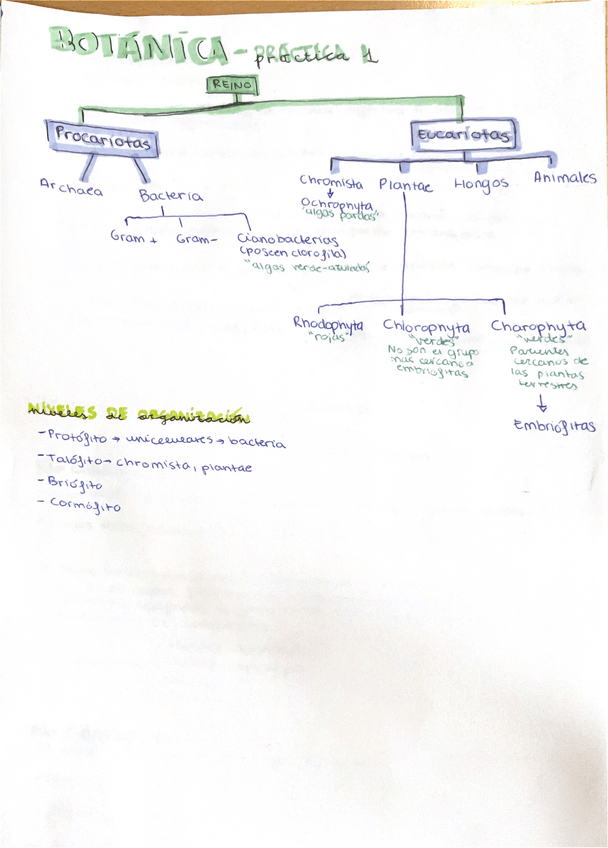 BOTÁNICA - práctica 1
REINO
Procariotas
Eucariotas
Archaea
Bacteria
Gram +
Gram-
Cianobacterias
(poseen clorofila)
"algas verde-azuladas"
Chromista
Plantae
Hongos
Animales
Ochrophyta
"algas pardas"
Rhodophyta
"rojas"
Chlorophyta
"verdes"
No son el grupo
más cercano a
embriófitas
Charophyta
"verdes"
Parientes
cercanos de
las plantas
terrestres
Embriófitas
NIVELES DE ORGANIZACIÓN
niveles de organización
-Protófito → unicelulares → bacteria
-Talófito → chromista, plantae
- Briófito
- Cormófito